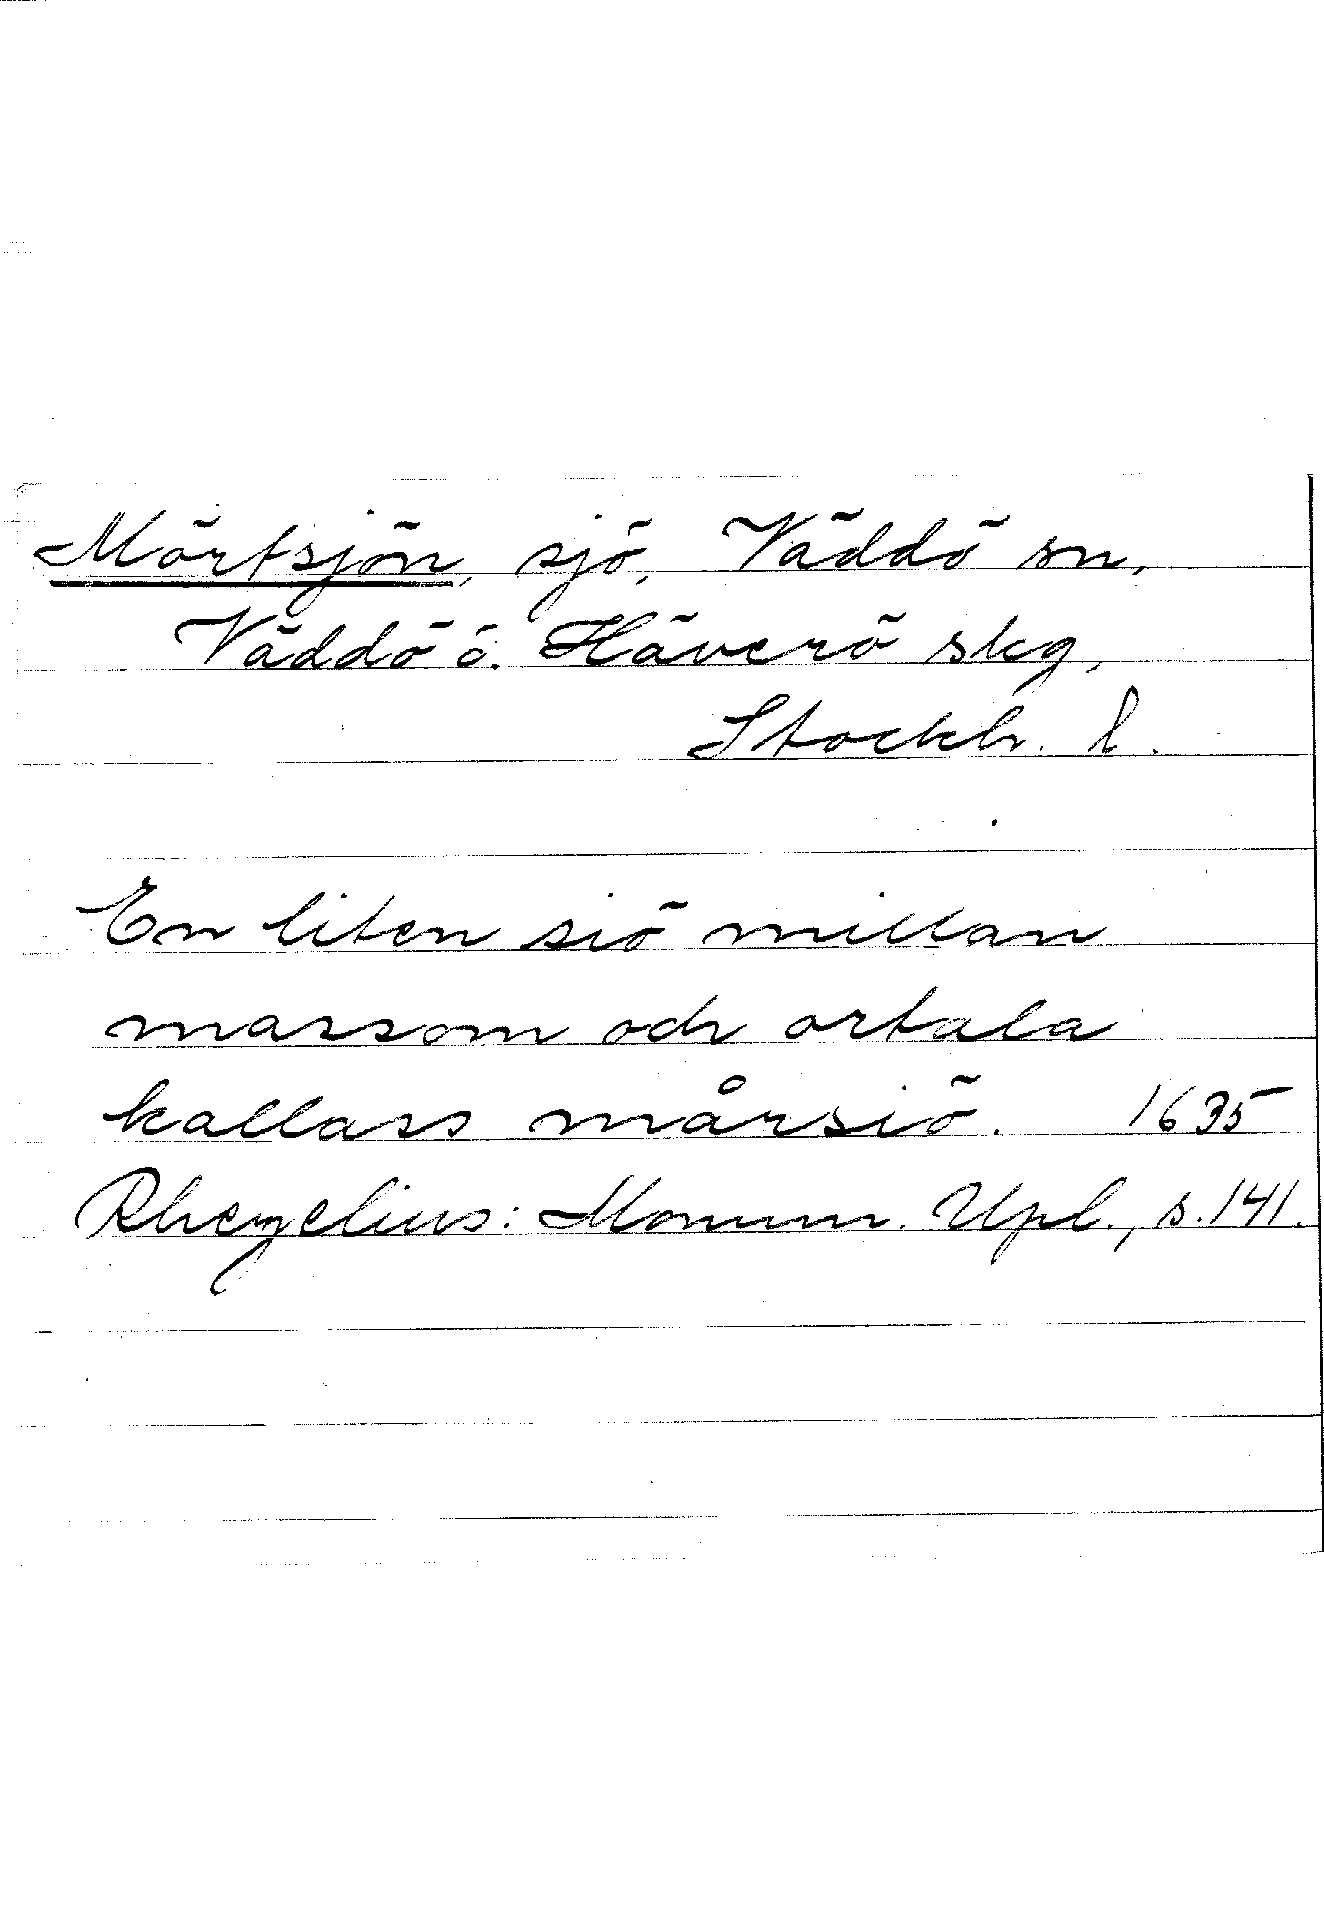 Mörtsjön, sjö, Väddö sn,
Väddö o. Häverö skg,
Stockh. l.
En liten siö millan
massom och ortala
kallass mårsiö. 1635
Rhezelius: Monum. Upl., s. 141.